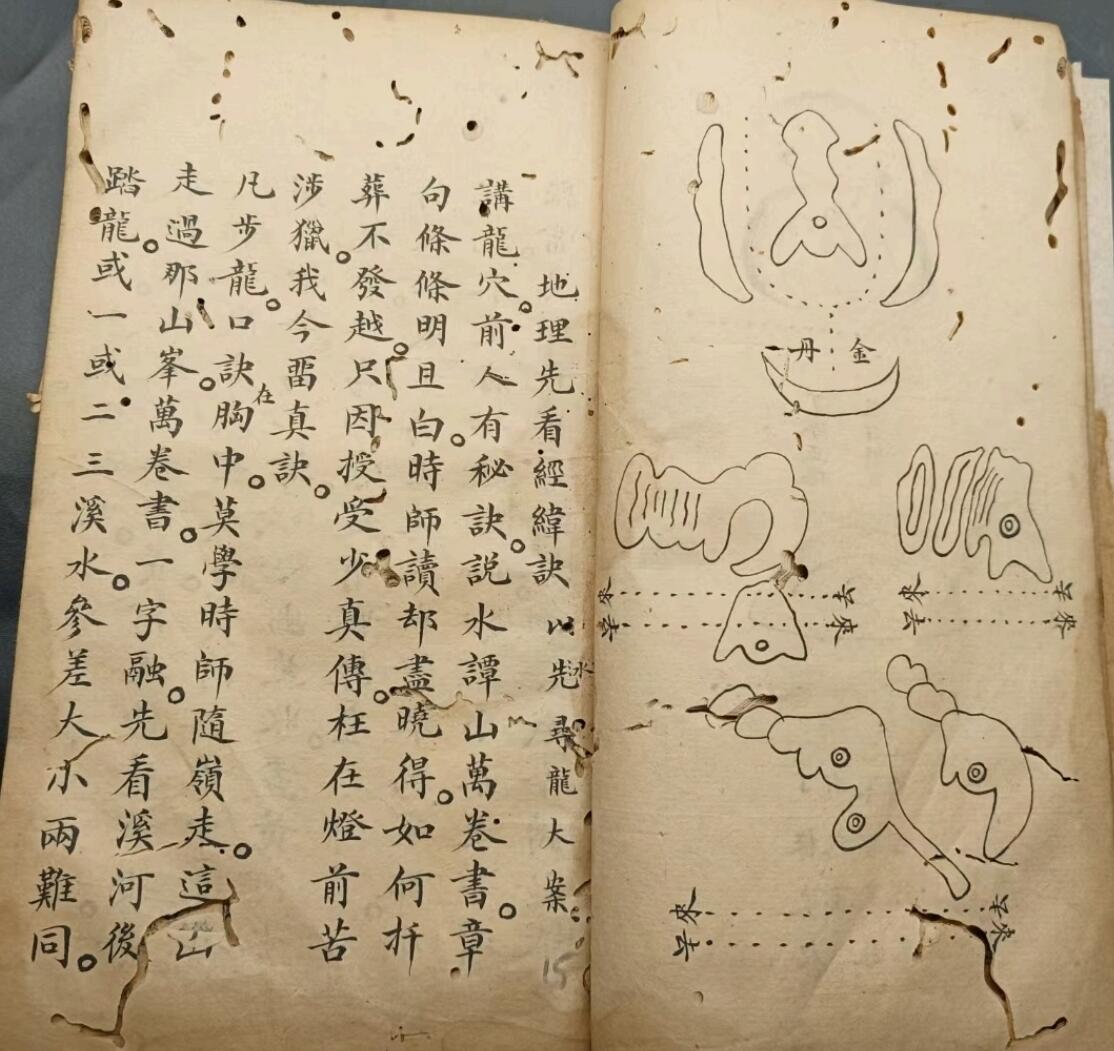 金丹
地理先看經緯訣 以先水尋龍大案
15
講龍穴。前人有秘訣。説水譚山萬卷書。章
句條條明且白。時師讀却盡曉得。如何扦
葬不發越。只因授受少真傳。枉在燈前苦
涉獵。我今畱真訣。
凡步龍。口訣在胸中。莫學時師隨嶺走。這山
走過那山峯。萬卷書。一字融。先看溪河後
踏龍。或一或二三溪水。參差大小兩難同。